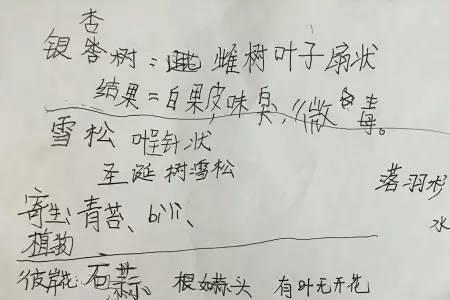 杏
银杏树：雌树叶子扇状
结果＝白果皮味臭，微毒。
雪松 呈针状
圣诞树雪松
落羽杉
水
寄生、青苔、bili、
植物
彼岸花：石蒜、根如蒜头 有叶无开花